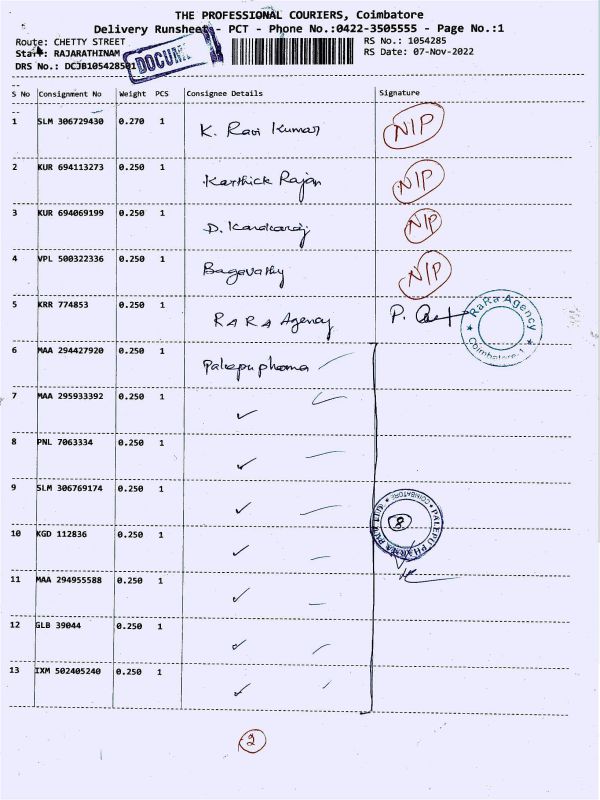 THE PROFESSIONAL COURIERS, Coimbatore
Delivery Runsheet - PCT - Phone No.:0422-3505555 - Page No.:1
Route: CHETTY STREET
RS No.: 1054285
Staff: RAJARATHINAM
RS Date: 07-Nov-2022
DRS No.: DCJB105428501
DOCUM
S No Consignment No Weight PCS Consignee Details Signature
1 SLM 306729430 0.270 1 K. Ravi Kumar N/P
2 KUR 694113273 0.250 1 Karthick Rajan N/P
3 KUR 694069199 0.250 1 D. N/P
4 VPL 500322336 0.250 1 Bagavathy N/P
5 KRR 774853 0.250 1 RARA Agency P.
RaRa Agency
Coimbatore-1
6 MAA 294427920 0.250 1 Palepu pharma
7 MAA 295933392 0.250 1 ✓
8 PNL 7063334 0.250 1 ✓
9 SLM 306769174 0.250 1 ✓
PALEPU PHARMA
COIMBATORE
8
10 KGD 112836 0.250 1 ✓
11 MAA 294955588 0.250 1 ✓
12 GLB 39044 0.250 1 ✓
13 IXM 502405240 0.250 1 ✓
2